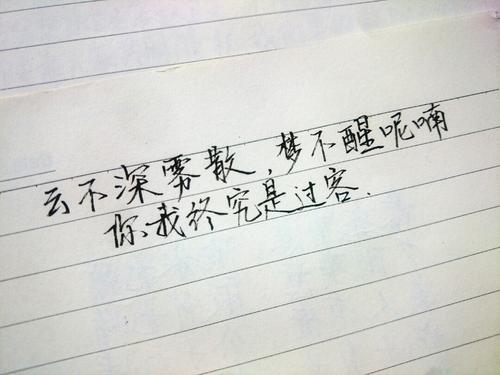 云不深雾散,梦不醒呢喃
你我终究是过客.